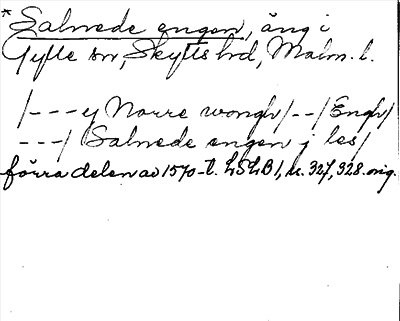 *Salnede engen, äng i
Gylle sn, Skytts hd, Malm. l.
/---y Norre wongh/--/Engh/
---/ Salnede engen j les/
förra delen av 1570-t. LSLB 1, s. 327, 328. orig.